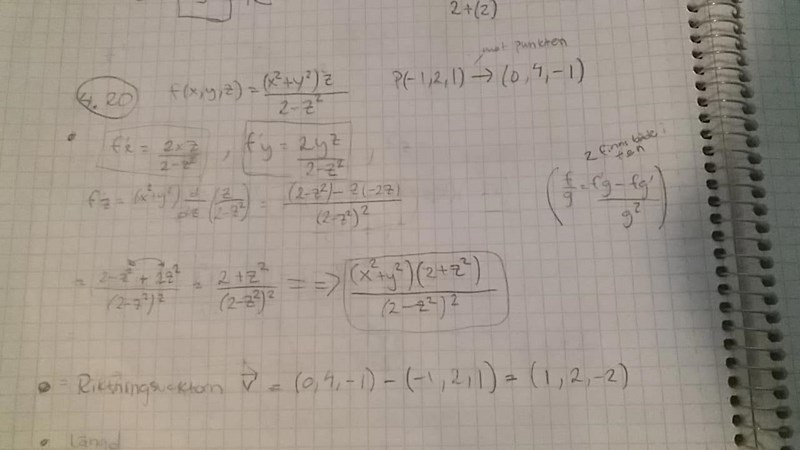 2+(2)
4.20 f(x,y,z) = (x²+y²)z / 2-z² P(-1,2,1) → (0,4,-1)
mot punkten
f'x = 2xz / 2-z² , f'y = 2yz / 2-z²
2 finns både i
f'z = (x²+y²) d/dz (z / 2-z²) = (2-z²)-z(-2z) / (2-z²)²
(f/g = f'g-fg' / g²)
= 2-z²+2z² / (2-z²)² = 2+z² / (2-z²)² = => (x²+y²)(2+z²) / (2-z²)²
• = Riktningsvektorn v⃗ = (0,4,-1) - (-1,2,1) = (1,2,-2)
• Längd